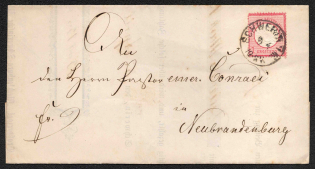 An
den Herrn Pastor emer. Conradi
fr.
in
Neubrandenburg
SCHWERIN IN